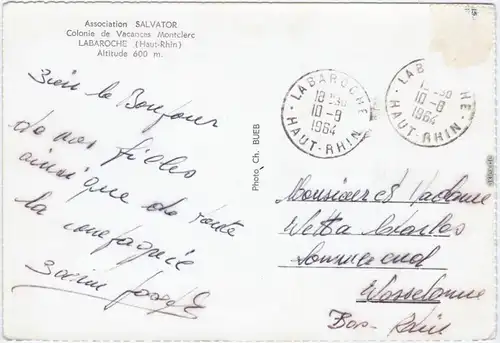 Association SALVATOR
Colonie de Vacances Montclerc
LABAROCHE (Haut-Rhin)
Altitude 600 m.
bien le Bonjour
de nos
ainsi que de toute
la compagnie
Joseph
Photo, Ch. BUEB
LABAROCHE
18H30
10-8
1964
HAUT-RHIN
LABAROCHE
10-8
1964
HAUT-RHIN
Monsieur et Madame
Charles
Wasselonne
Bas-Rhin